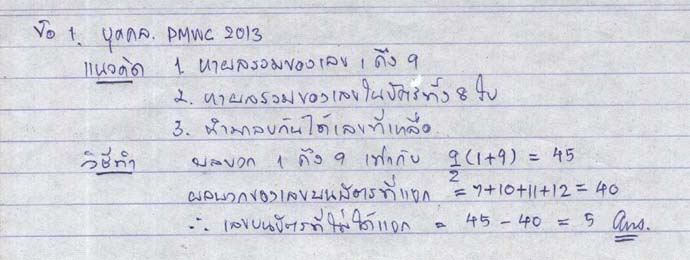 ข้อ 1. บุคคล. PMWC 2013
แนวคิด 1. หาผลรวมของเลข 1 ถึง 9
2. หาผลรวมของเลขในบัตรทั้ง 8 ใบ
3. นำมาลบกันได้เลขที่เหลือ
วิธีทำ ผลบวก 1 ถึง 9 เท่ากับ 9/2 (1+9) = 45
ผลบวกของเลขบนบัตรที่แจก = 7+10+11+12 = 40
∴ เลขบนบัตรที่ไม่ได้แจก = 45 - 40 = 5 Ans.